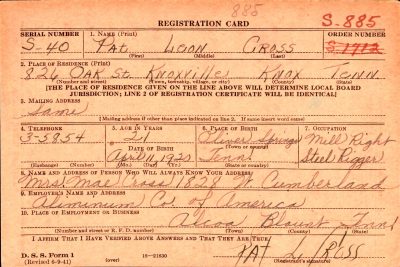 885
REGISTRATION CARD
S-885
SERIAL NUMBER 1. NAME (Print) ORDER NUMBER
S-40 PAT LEON CROSS S-1712
(First) (Middle) (Last)
2. PLACE OF RESIDENCE (Print)
826 OAK St. KNOXVILLE KNOX TENN
(Number and street) (Town, township, village, or city) (County) (State)
[THE PLACE OF RESIDENCE GIVEN ON THE LINE ABOVE WILL DETERMINE LOCAL BOARD
JURISDICTION; LINE 2 OF REGISTRATION CERTIFICATE WILL BE IDENTICAL]
3. MAILING ADDRESS
Same
[Mailing address if other than place indicated on line 2. If same insert word same]
4. TELEPHONE 5. AGE IN YEARS 6. PLACE OF BIRTH 7. OCCUPATION
3-3854 21 Oliver Springs Mill Right
DATE OF BIRTH (Town or county)
April 11, 1920 Tenn Steel Rigger
(Exchange) (Number) (Mo.) (Day) (Yr.) (State or country)
8. NAME AND ADDRESS OF PERSON WHO WILL ALWAYS KNOW YOUR ADDRESS
Mrs. Mae Cross 1828 W. Cumberland
9. EMPLOYER'S NAME AND ADDRESS
Aluminium Co. of America
10. PLACE OF EMPLOYMENT OR BUSINESS
Alcoa Blount Tenn
(Number and street or R. F. D. number) (Town) (County) (State)
I AFFIRM THAT I HAVE VERIFIED ABOVE ANSWERS AND THAT THEY ARE TRUE.
D. S. S. Form 1
(Revised 6-9-41) 16—21630 PAT L. CROSS